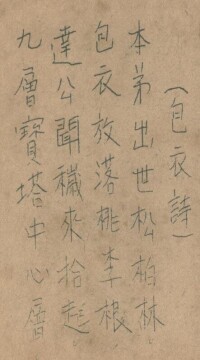 (包衣詩)
本弟出世松柏林
包衣放落桃李根
達公聞穢來拾起
九層寶塔中心層